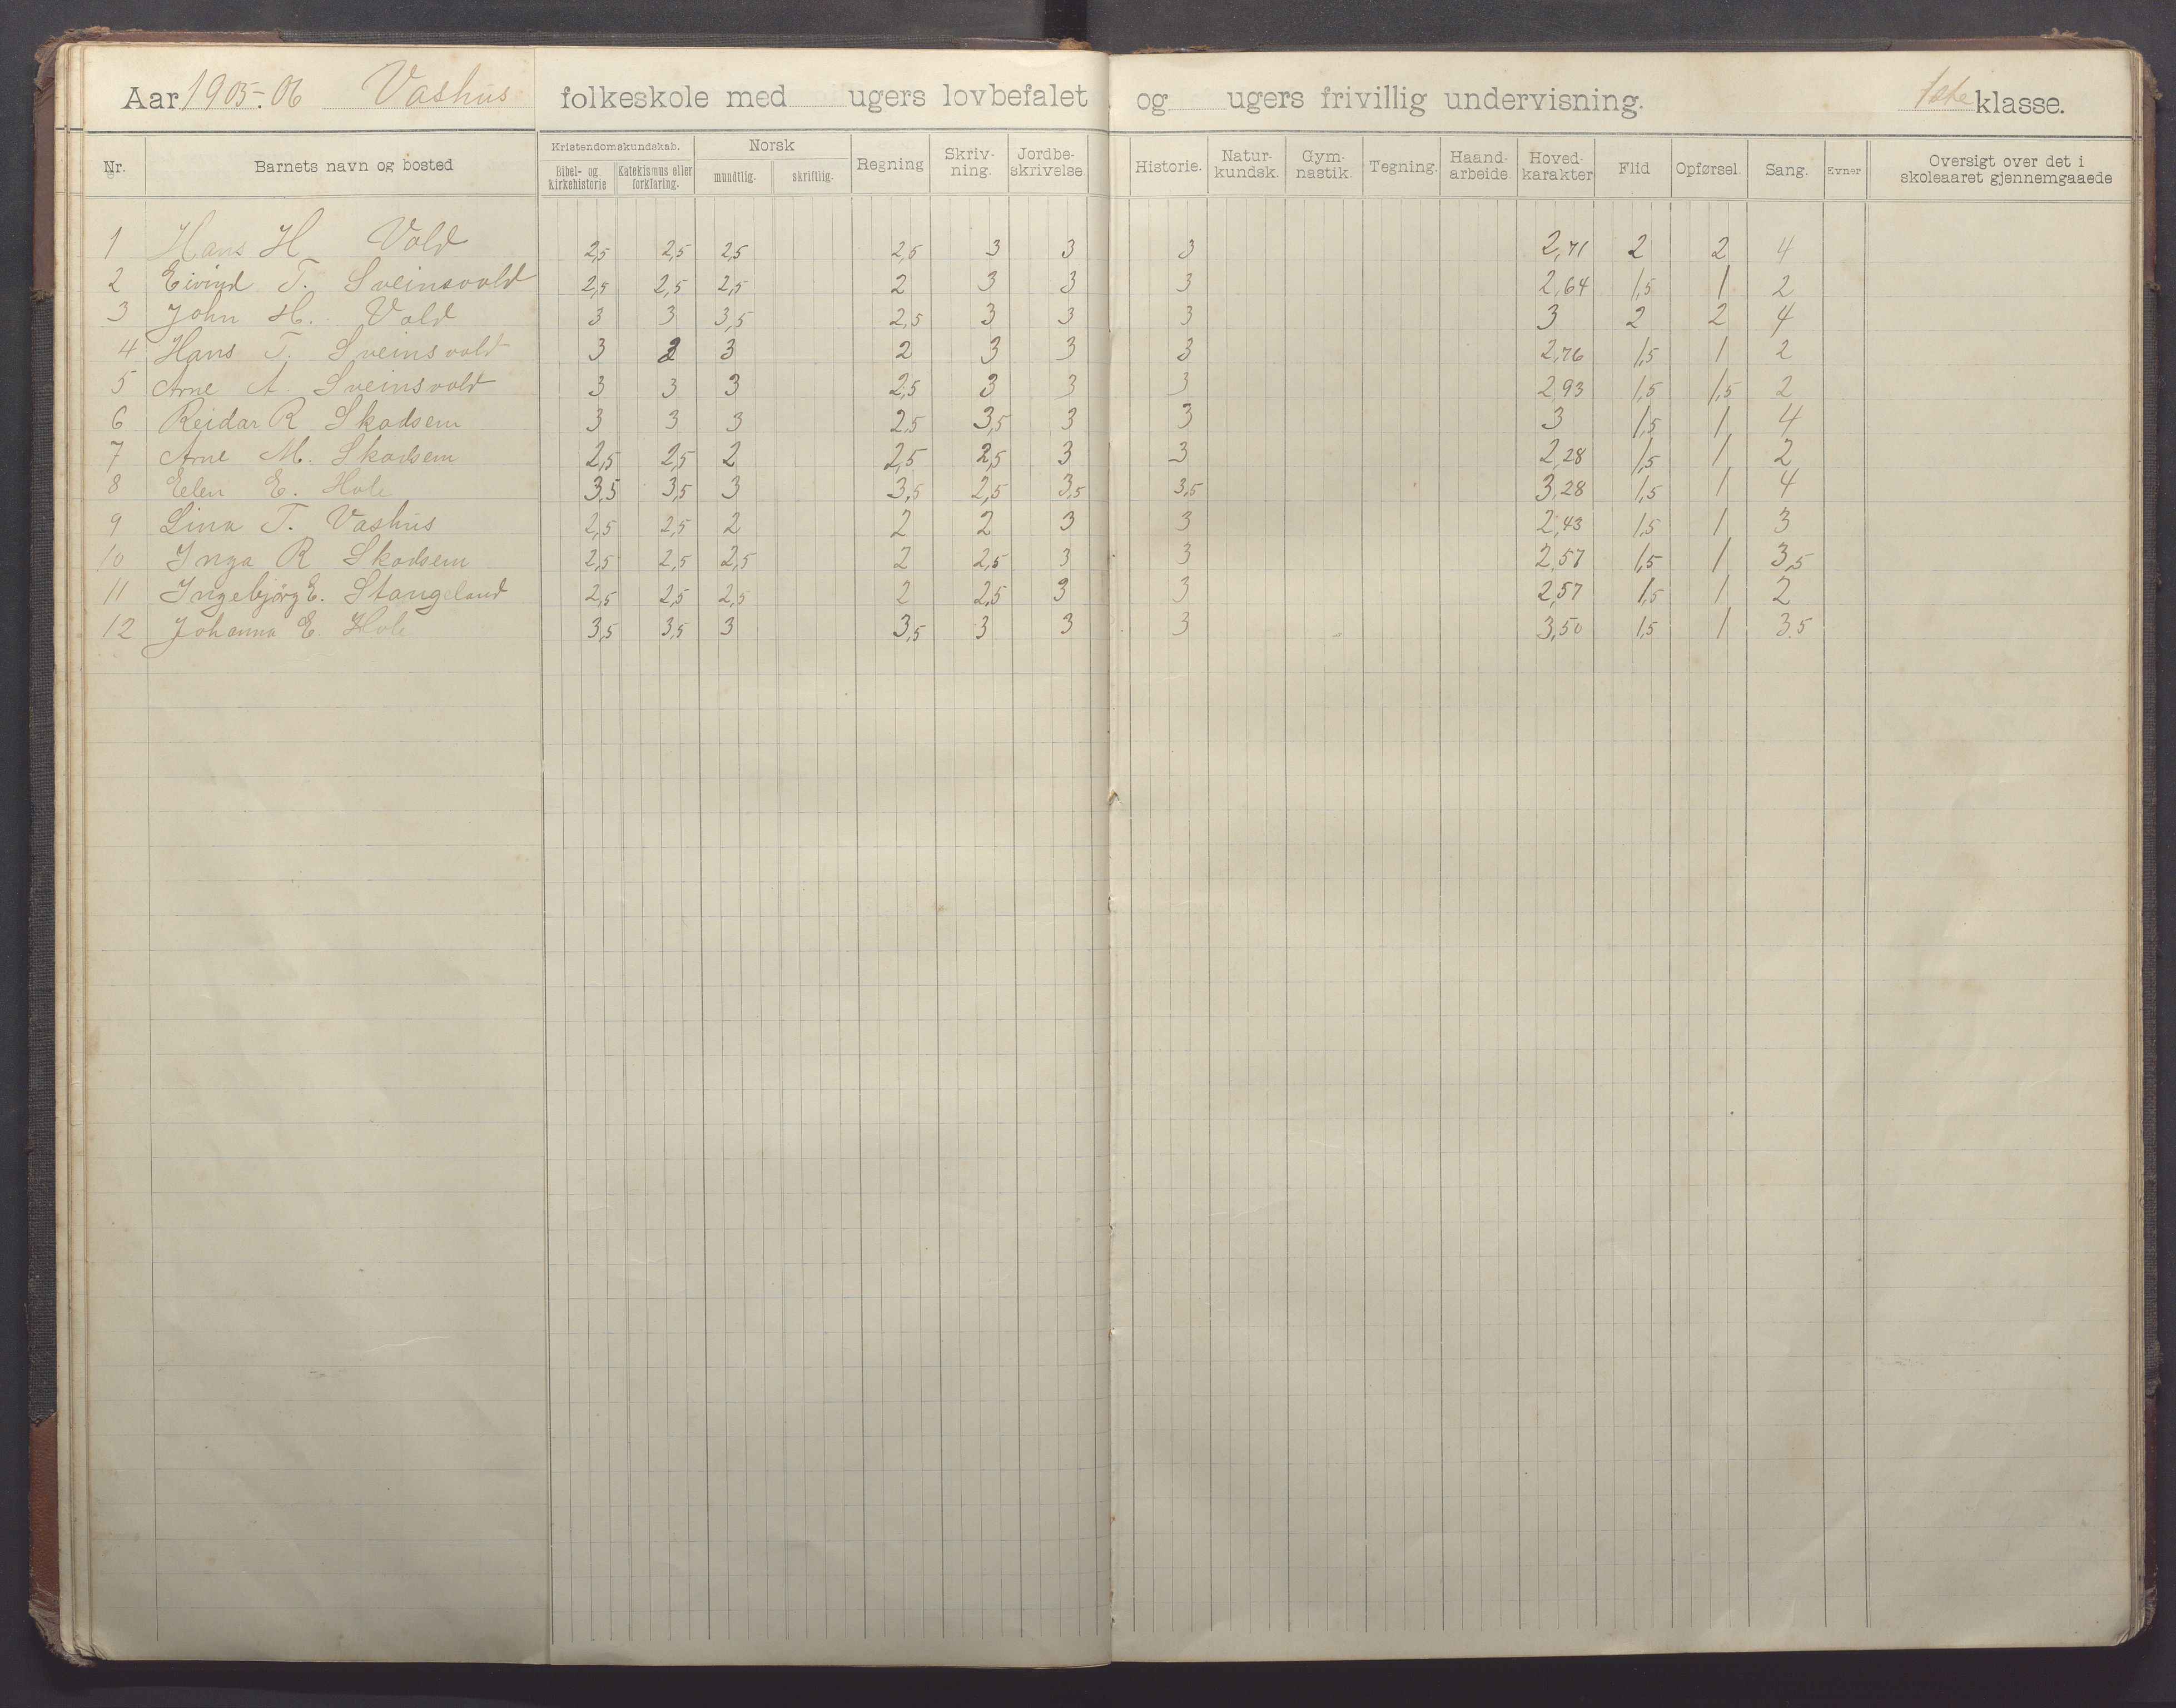 Aar 1905-06 Vashus folkeskole med ugers lovbefalet og ugers frivillig undervisning. 1ste klasse.
Nr. Barnets navn og bosted Kristendomskundskab. Bibel- og kirkehistorie Katekismus eller forklaring. Norsk mundtlig. skriftlig. Regning Skriv-ning. Jordbe-skrivelse. Historie. Natur-kundsk. Gym-nastik. Tegning. Haand-arbeide. Hoved-karakter Flid Opførsel. Sang. Evner Oversigt over det i skoleaaret gjennemgaaede
1 Hans H Vold 2,5 2,5 2,5 2,5 3 3 3 2,71 2 2 4
2 Eivind T. Sveinsvold 2,5 2,5 2,5 2 3 3 3 2,64 1,5 1 2
3 John H. Vold 3 3 3,5 2,5 3 3 3 3 2 2 4
4 Hans T. Sveinsvold 3 3 2 3 3 3 2,76 1,5 1 2
5 Arne A. Sveinsvold 3 3 3 2,5 3 3 3 2,93 1,5 1,5 2
6 Reidar R Skadsem 3 3 3 2,5 3,5 3 3 3 1,5 1 4
7 Arne M. Skadsem 2,5 2,5 2 2,5 2,5 3 3 2,28 1,5 1 2
8 Elen E. Hole 3,5 3,5 3 3,5 2,5 3,5 3,5 3,28 1,5 1 4
9 Lina T. Vashus 2,5 2,5 2 2 2 3 3 2,43 1,5 1 3
10 Inga R Skadsem 2,5 2,5 2,5 2 2,5 3 3 2,57 1,5 1 3,5
11 Ingebjørg E. Stangeland 2,5 2,5 2,5 2 2,5 3 3 2,57 1,5 1 2
12 Johanna E. Hole 3,5 3,5 3 3,5 3 3 3 3,50 1,5 1 3,5